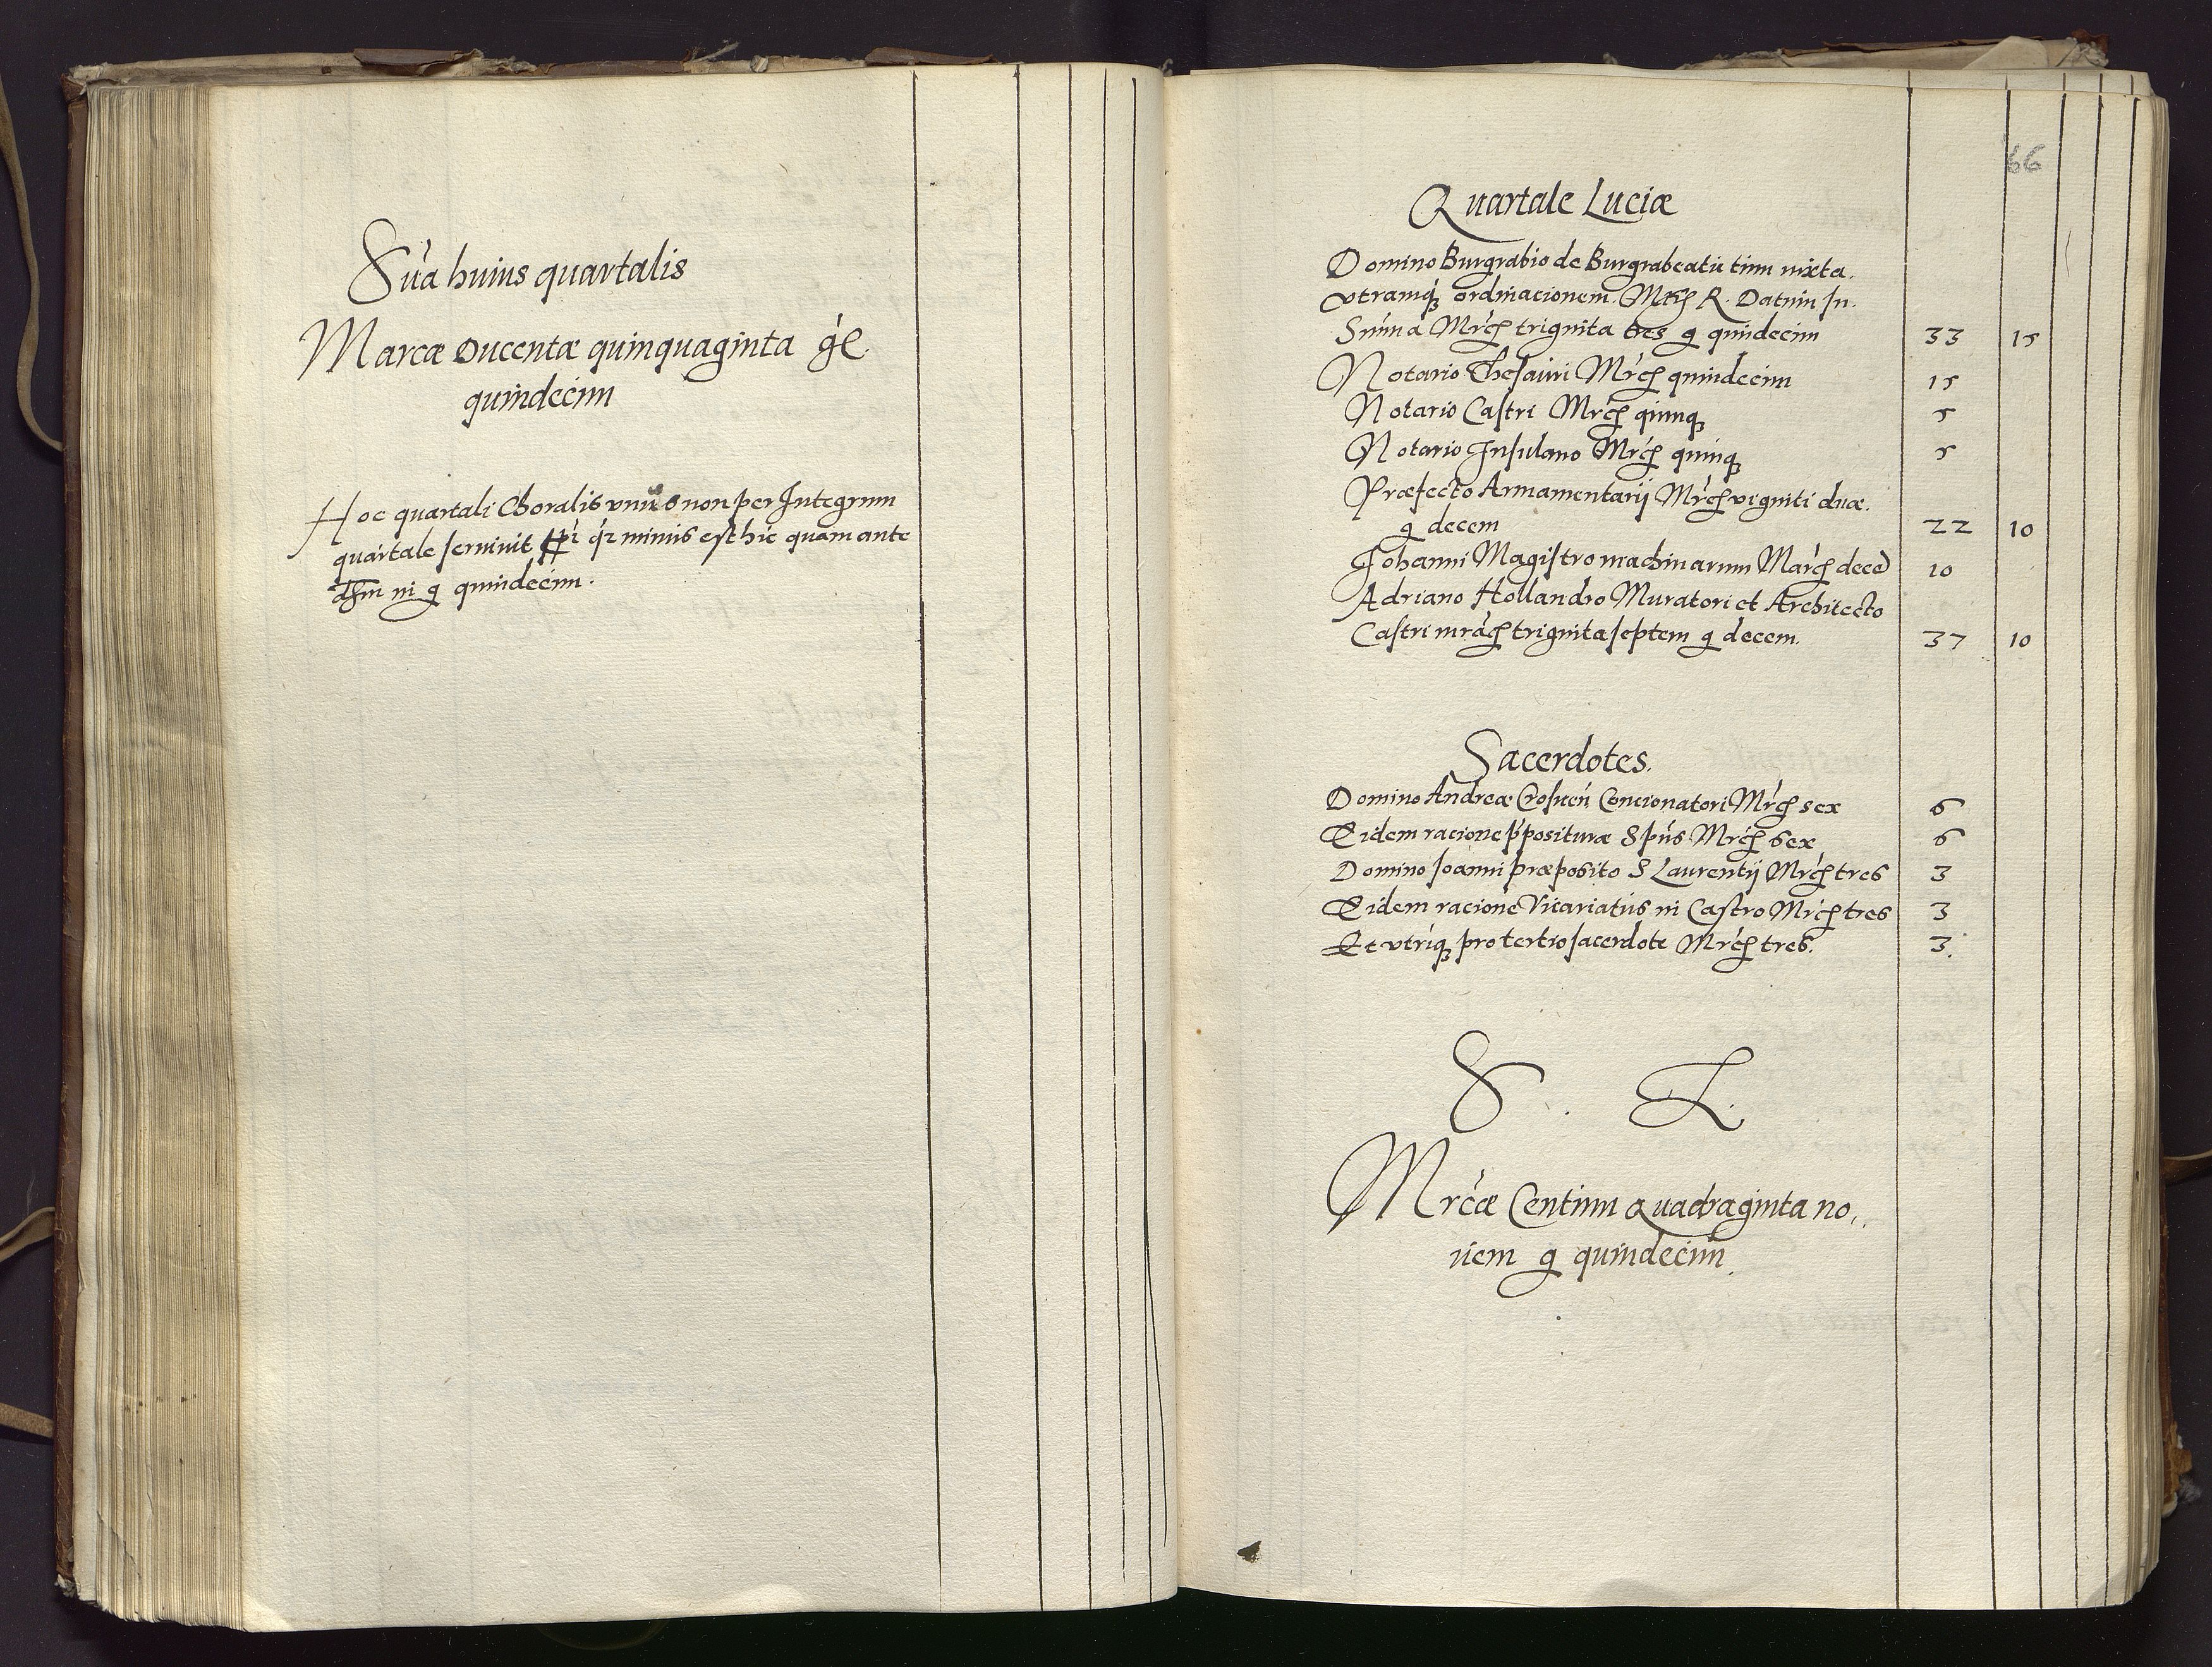 Sūa huius quartalis
Marcæ Ducentæ quinquaginta
quindecim
Hoc quartali Choralis unus non per Integrum
quartale seruiuit minus est hic quam ante
in g quindecim.
66
Quartale Luciæ
Domino Burgrabio de Burgrabeatu tum iuxta
utramq; ordinacionem. Mrcę R. Datum In
Suma Mrcę triginta tres g quindecim 33 15
Notario Thesauri Mrcę quindecim 15
Notario Castri Mrcę quinq; 5
Notario Insulano Mrcę quinq; 5
Præfecto Armamentarij Mrcę viginti duæ.
g decem 22 10
Johanni Magistro machinarum Marcę decē 10
Adriano Hollandro Muratori et Architecto
Castri mrcę triginta septem g decem. 37 10
Sacerdotes.
Domino Andreæ Concionatori Mrcę sex 6
Eidem racione ppositurae S spūs Mrcę sex 6
Domino Joanni præposito S Laurentij Mrcę tres 3
Eidem racione Vicariatus in Castro Mrcę tres 3
Et utriq; pro tertio sacerdote Mrcę tres. 3.
S. L.
Mrcæ Centum Quadraginta no,,
uem g quindecim.